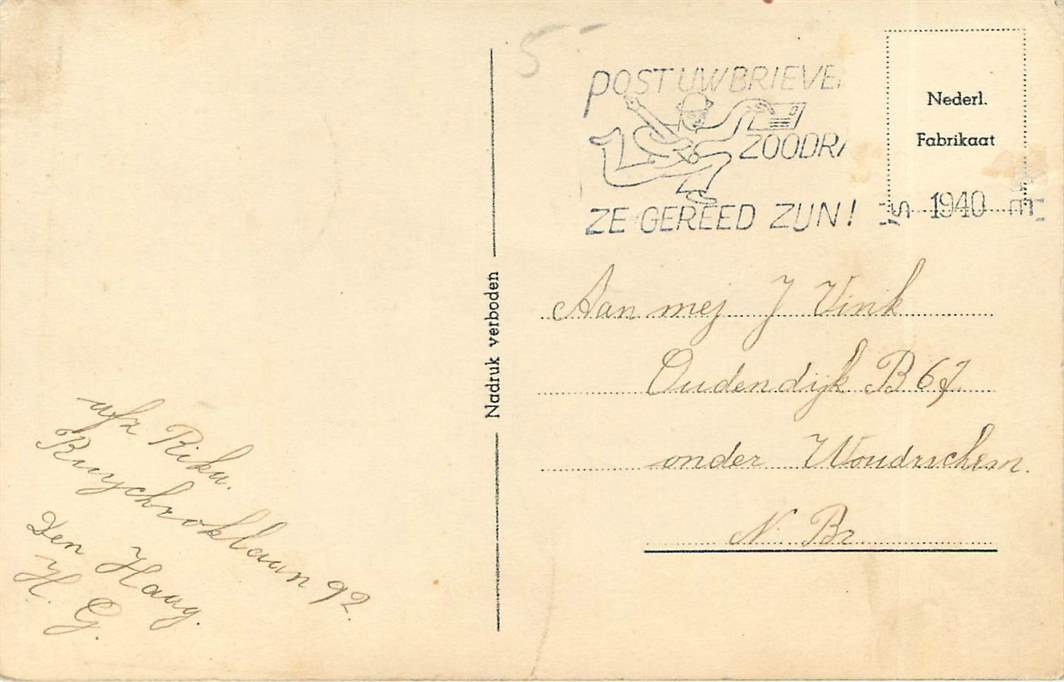 5-
POST UW BRIEVE
ZOODRA
ZE GEREED ZIJN!
'S 1940 E
Nederl.
Fabrikaat
Nadruk verboden
Aan mej J Vink
Oudendijk B 67
onder Woudrichem.
N. Br.
afz Riku.
Ruychroklaan 92.
Den Haag.
H. G.